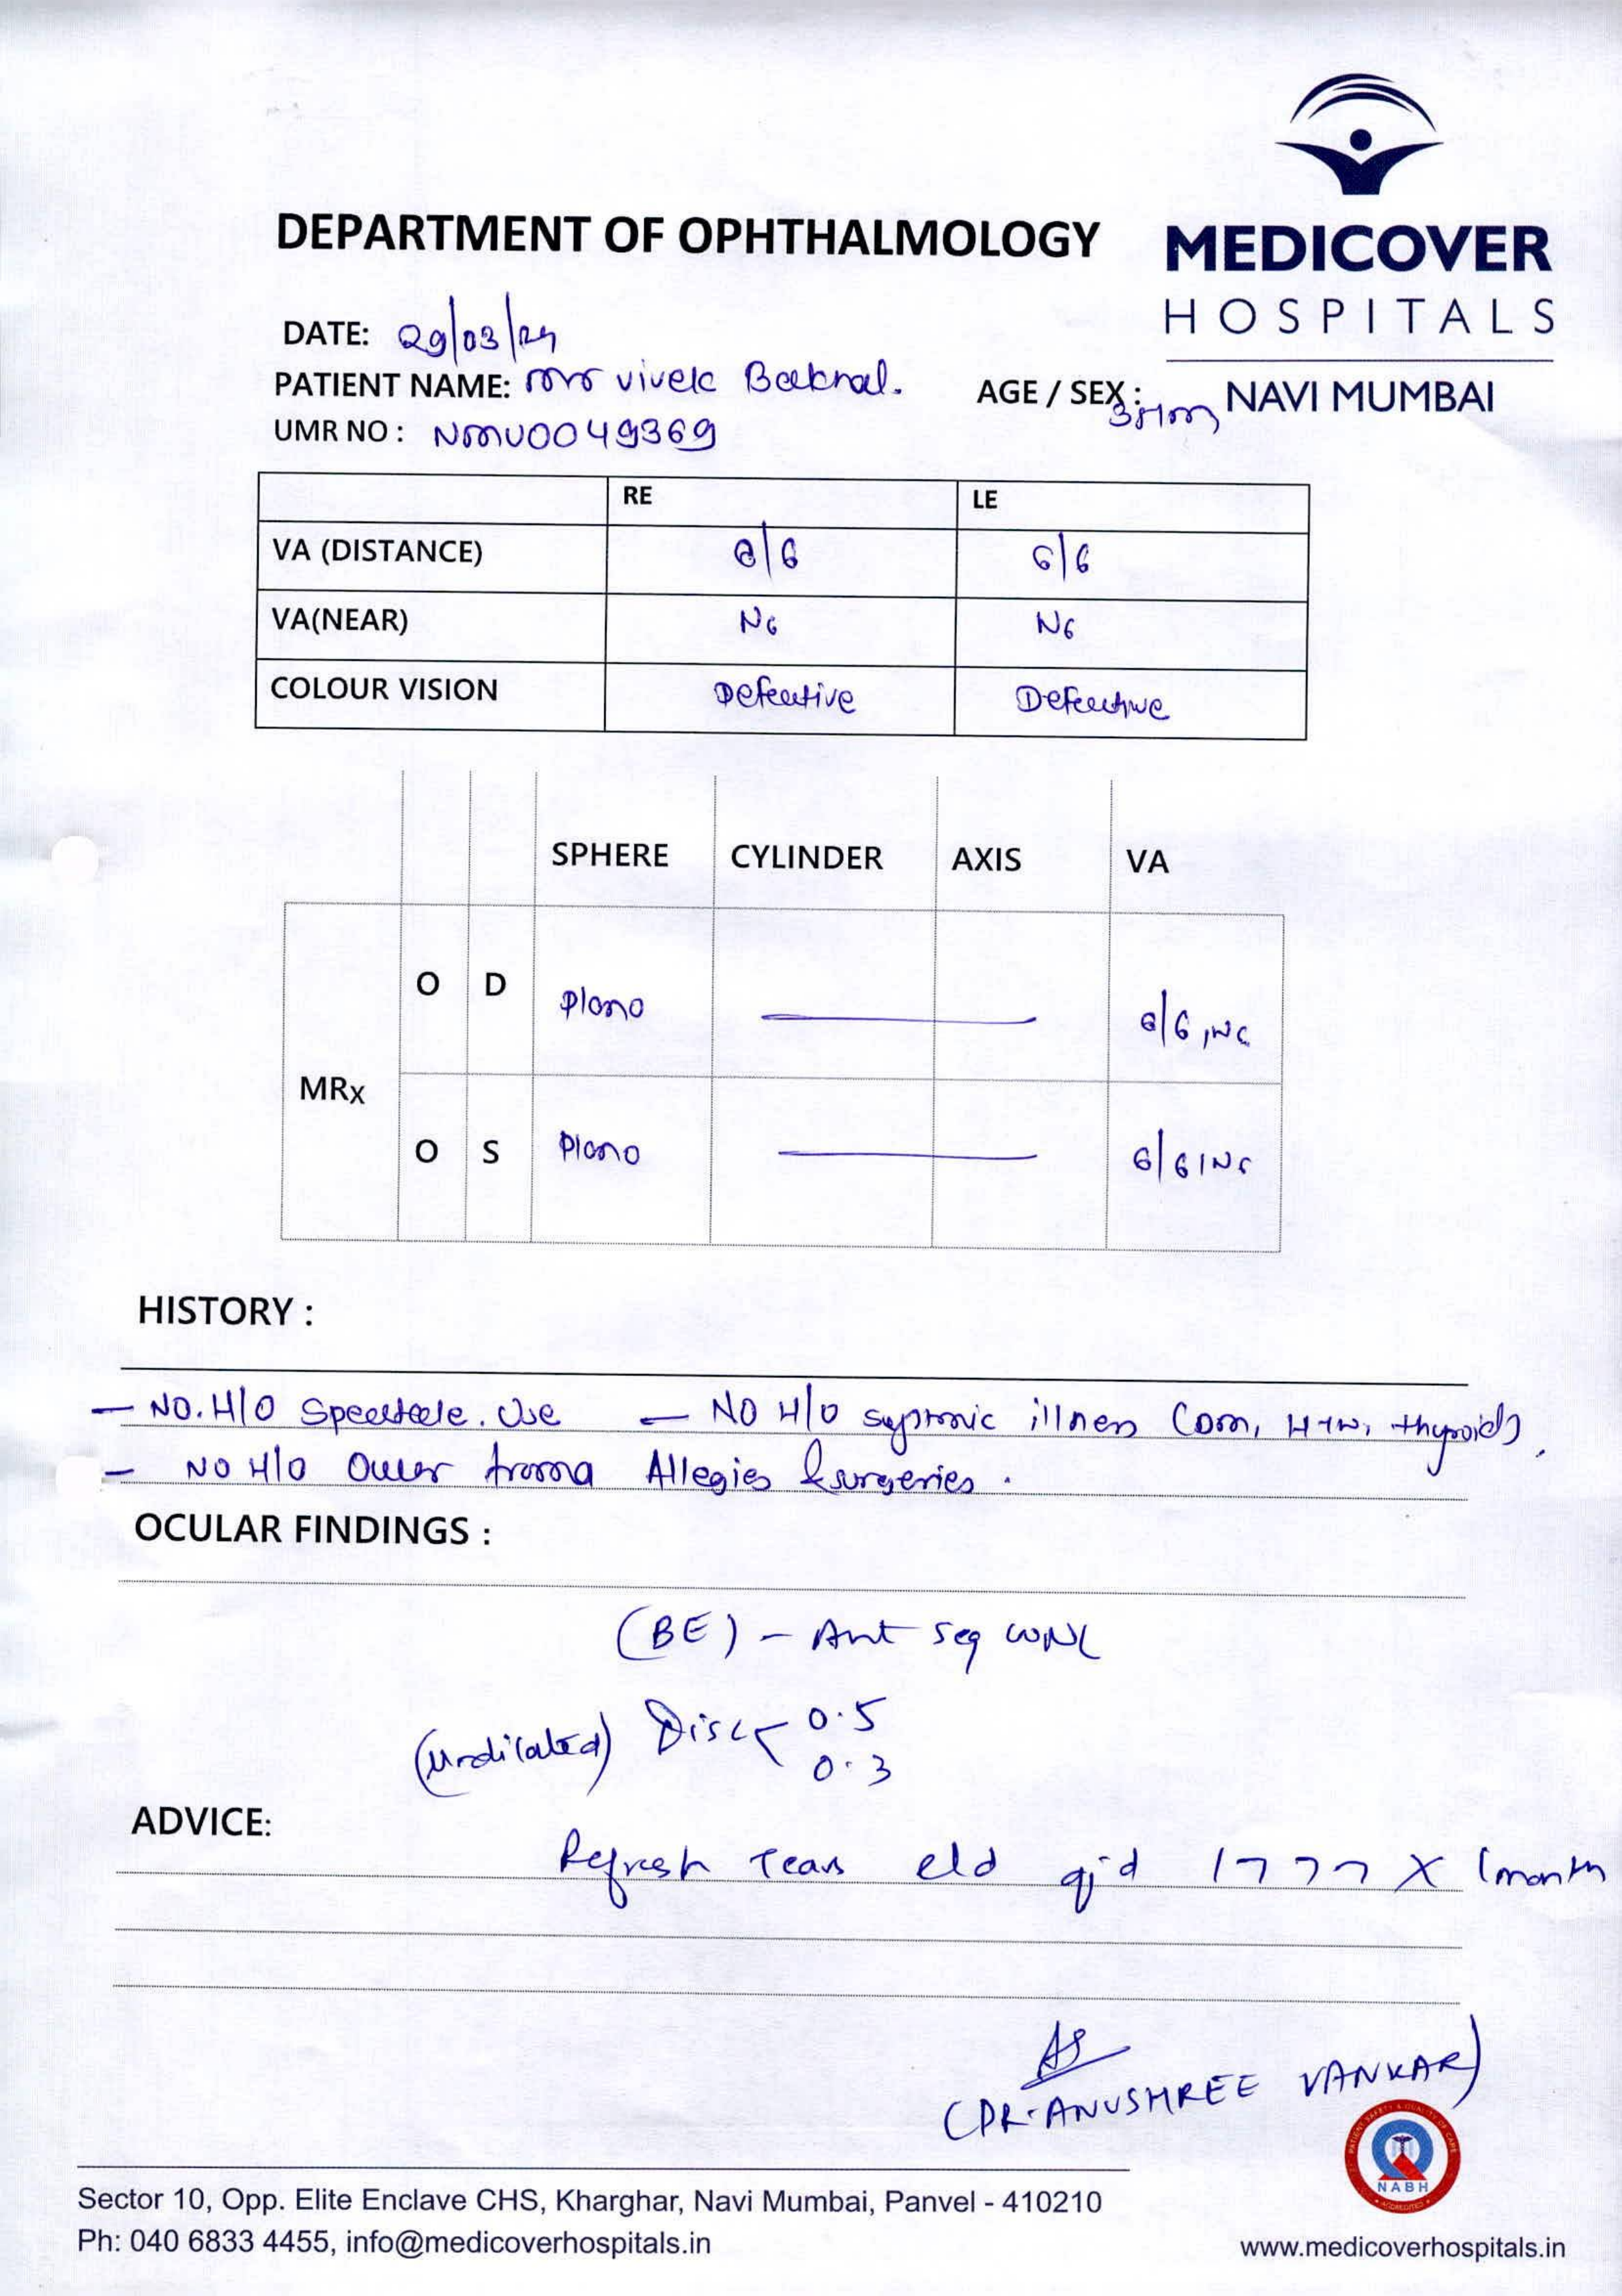 MEDICOVER
HOSPITALS
NAVI MUMBAI
DEPARTMENT OF OPHTHALMOLOGY
DATE: 29/03/24
PATIENT NAME: Mr Vivek
AGE / SEX :
UMR NO : NMU0049369
RE LE
VA (DISTANCE) 6/6 6/6
VA(NEAR) N6 N6
COLOUR VISION Defective Defective
SPHERE CYLINDER AXIS VA
O D Plano — 6/6, N6
MRx
O S Plano — 6/6 , N6
HISTORY :
- NO. H/O Spectacle. Use - NO H/O systemic illness (DM, HTN, thyroid),
- NO H/O Ocular trauma Allegies & surgeries .
OCULAR FINDINGS :
(BE) - Ant seg WNL
(undilated) Disc 0.5
0.3
ADVICE:
Refresh Tears e/d qid X 1 month
(DR. ANUSHREE VANKAR)
PATIENT SAFETY & QUALITY OF CARE
NABH
ACCREDITED
Sector 10, Opp. Elite Enclave CHS, Kharghar, Navi Mumbai, Panvel - 410210
Ph: 040 6833 4455, info@medicoverhospitals.in
www.medicoverhospitals.in